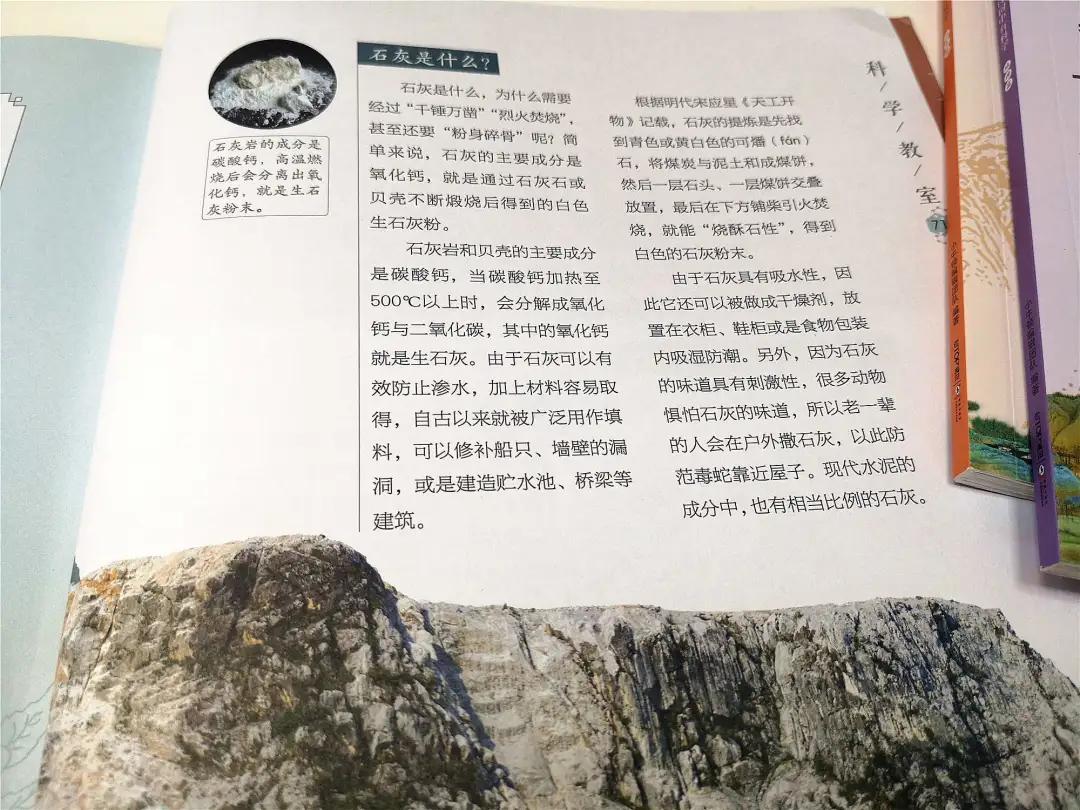 石灰是什么？
石灰是什么，为什么需要
经过“千锤万凿”“烈火焚烧”，
甚至还要“粉身碎骨”呢？简
单来说，石灰的主要成分是
氧化钙，就是通过石灰石或
贝壳不断煅烧后得到的白色
生石灰粉。
石灰岩和贝壳的主要成分
是碳酸钙，当碳酸钙加热至
500℃以上时，会分解成氧化
钙与二氧化碳，其中的氧化钙
就是生石灰。由于石灰可以有
效防止渗水，加上材料容易取
得，自古以来就被广泛用作填
料，可以修补船只、墙壁的漏
洞，或是建造贮水池、桥梁等
建筑。
石灰岩的成分是
碳酸钙，高温燃
烧后会分离出氧
化钙，就是生石
灰粉末。
根据明代宋应星《天工开
物》记载，石灰的提炼是先找
到青色或黄白色的可燔（fán）
石，将煤炭与泥土和成煤饼，
然后一层石头、一层煤饼交叠
放置，最后在下方铺柴引火焚
烧，就能“烧酥石性”，得到
白色的石灰粉末。
由于石灰具有吸水性，因
此它还可以被做成干燥剂，放
置在衣柜、鞋柜或是食物包装
内吸湿防潮。另外，因为石灰
的味道具有刺激性，很多动物
惧怕石灰的味道，所以老一辈
的人会在户外撒石灰，以此防
范毒蛇靠近屋子。现代水泥的
成分中，也有相当比例的石灰。
科/学/教/室
71